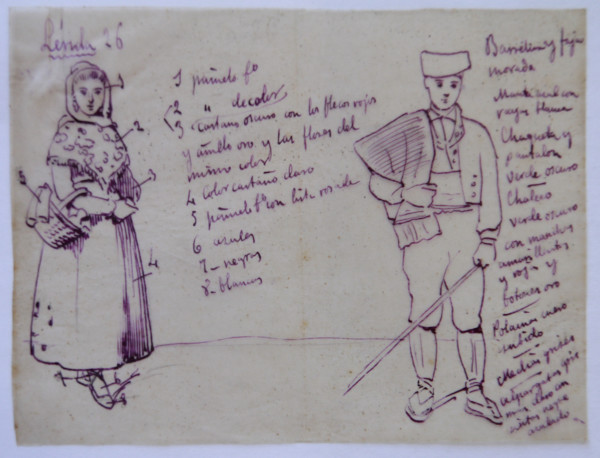 26
1 pañuelo fº
2 " de color
3 castaño oscuro con los flecos rojos
y amllo oro y las flores del
mismo color
4 color castaño claro
5 pañuelo fº con lista rosada
6 azules
7 - negros
8 - blancos
1
2
3
4
5
Barretina y faja
morada
Manta azul con
rayas blancas
Chaqueta y
pantalon
verde oscuro
Chaleco
verde oscuro
con manchas
amarillentas
y rojas y
botones oro
Polainas cuero
Medias grises
alpargatas